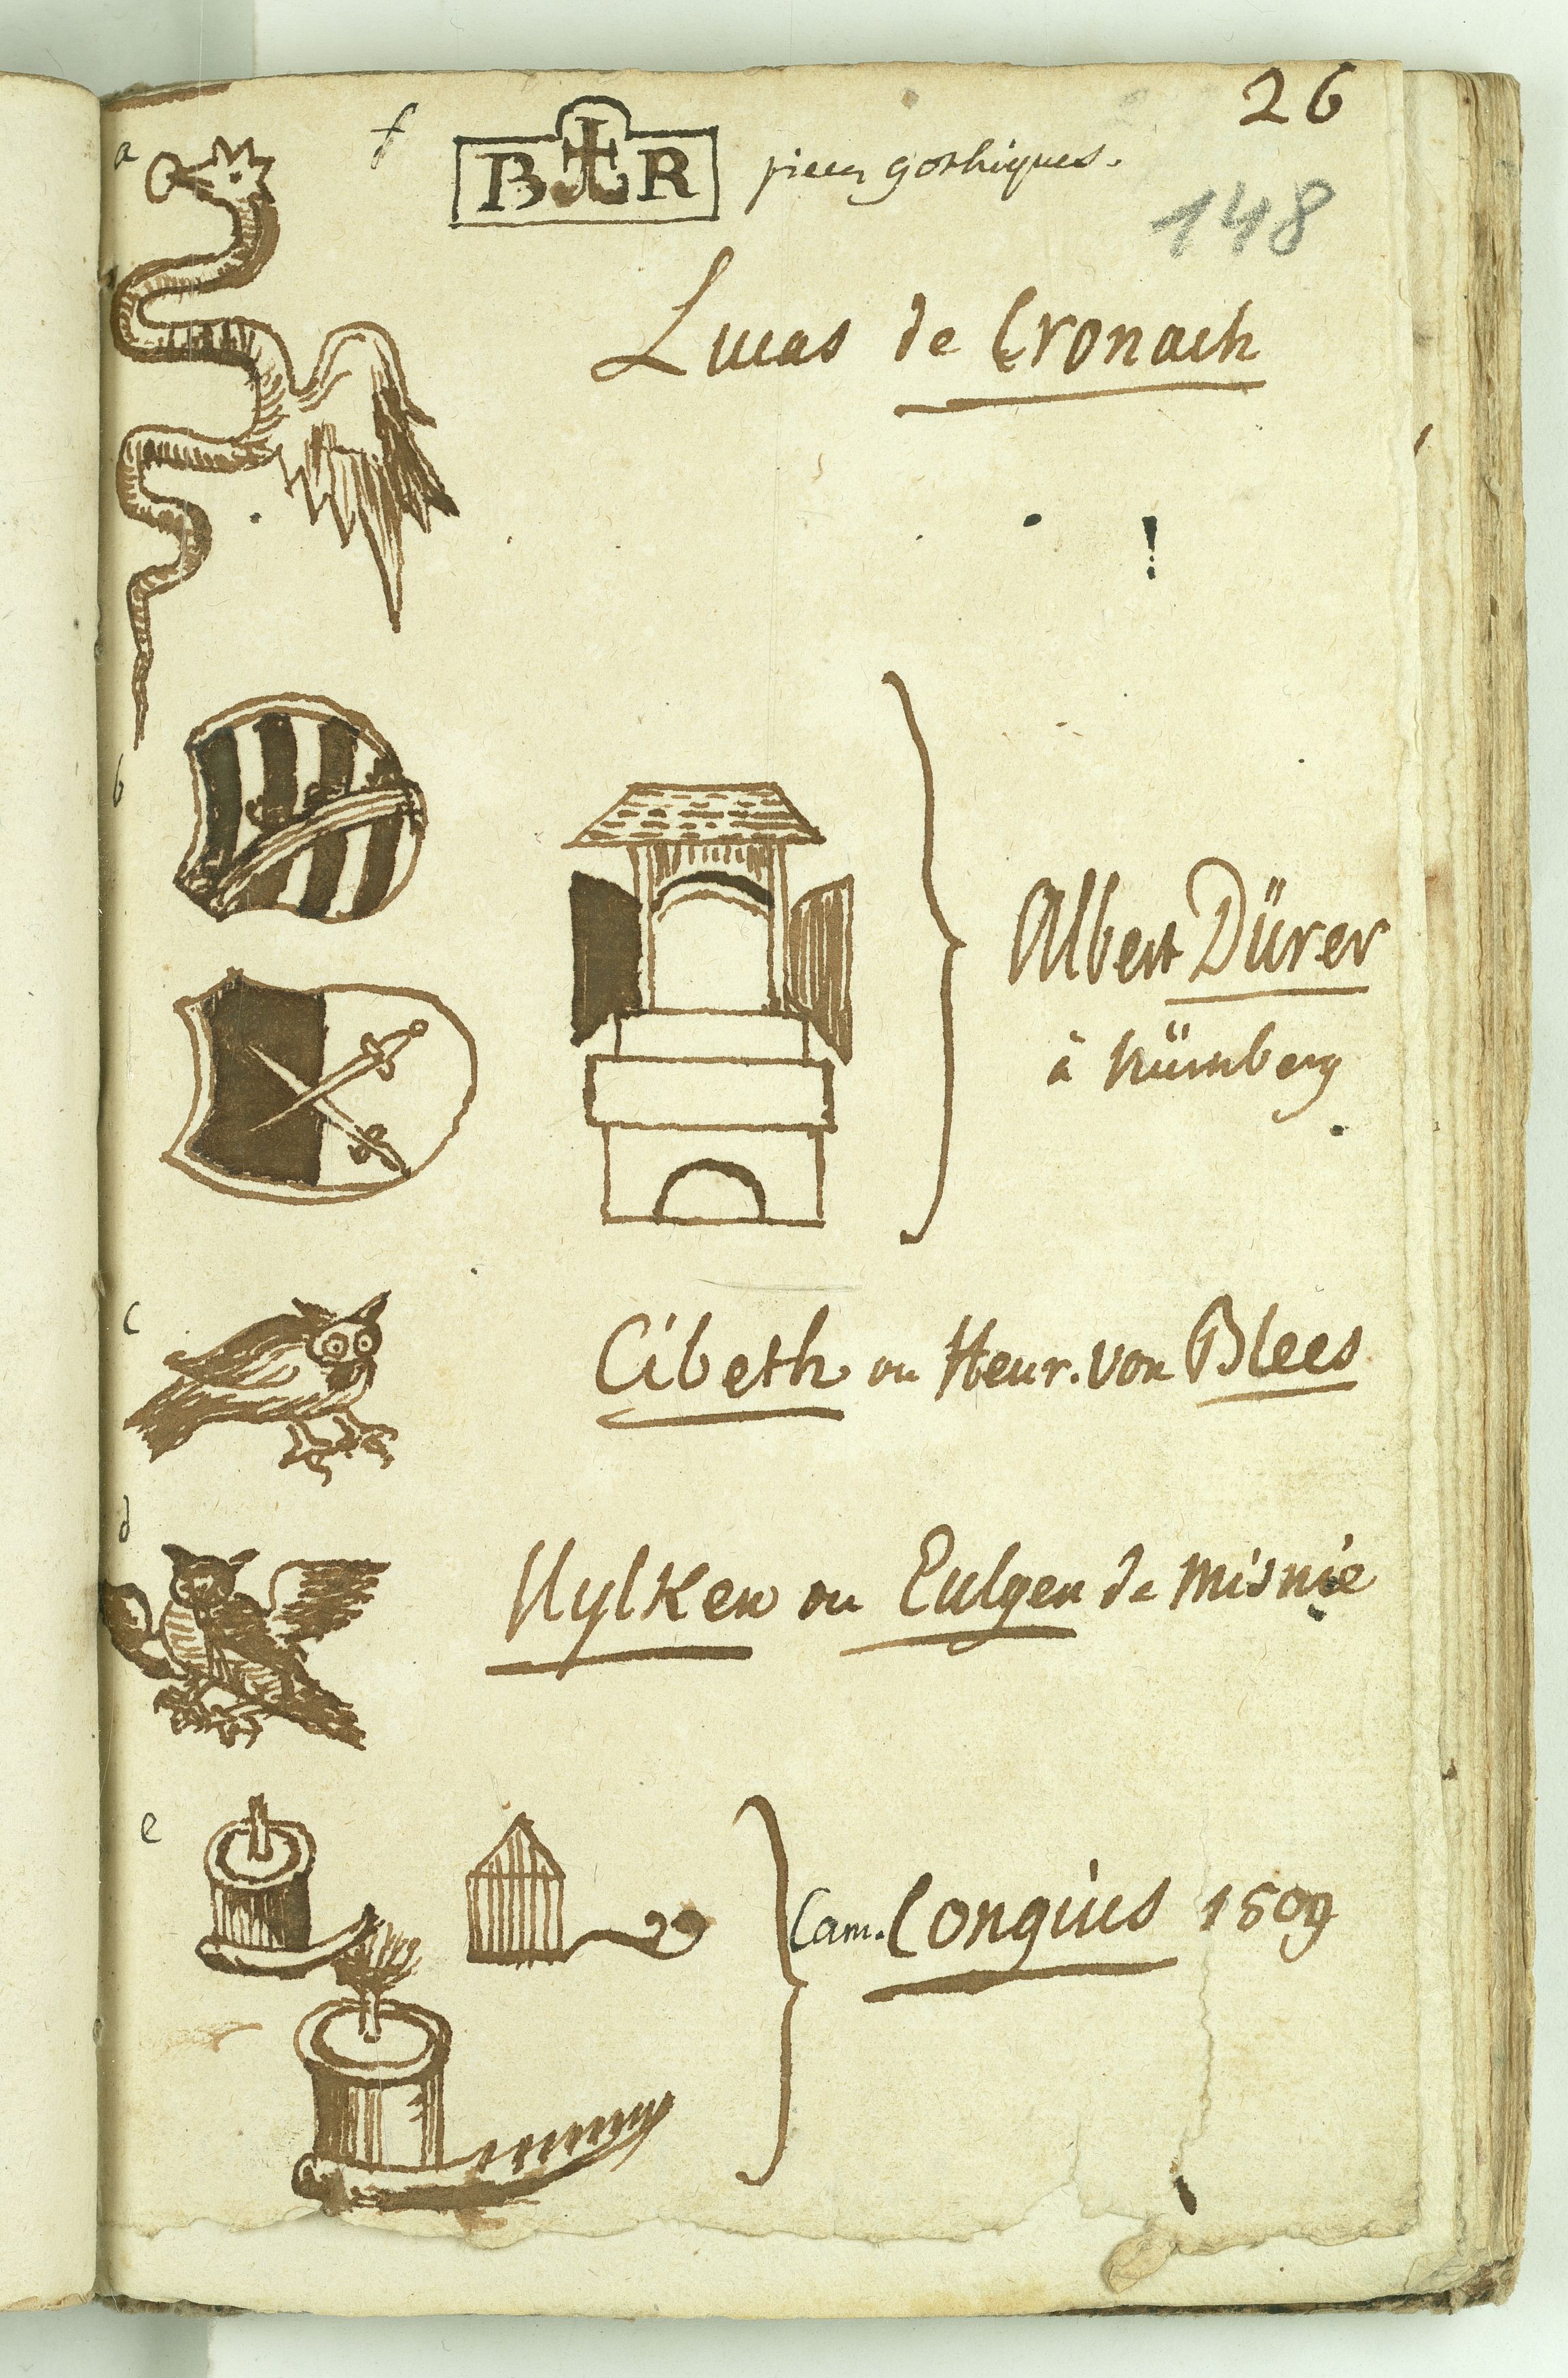 26
a
f
B R pieces gothiques.
148
Lucas de Cronach
b
Albert Dürer
à Nürnberg
c
Cibeth ou Henr. von Blees
d
Uylken ou Eulgen de Misnie
e
Cam. Congius 1509